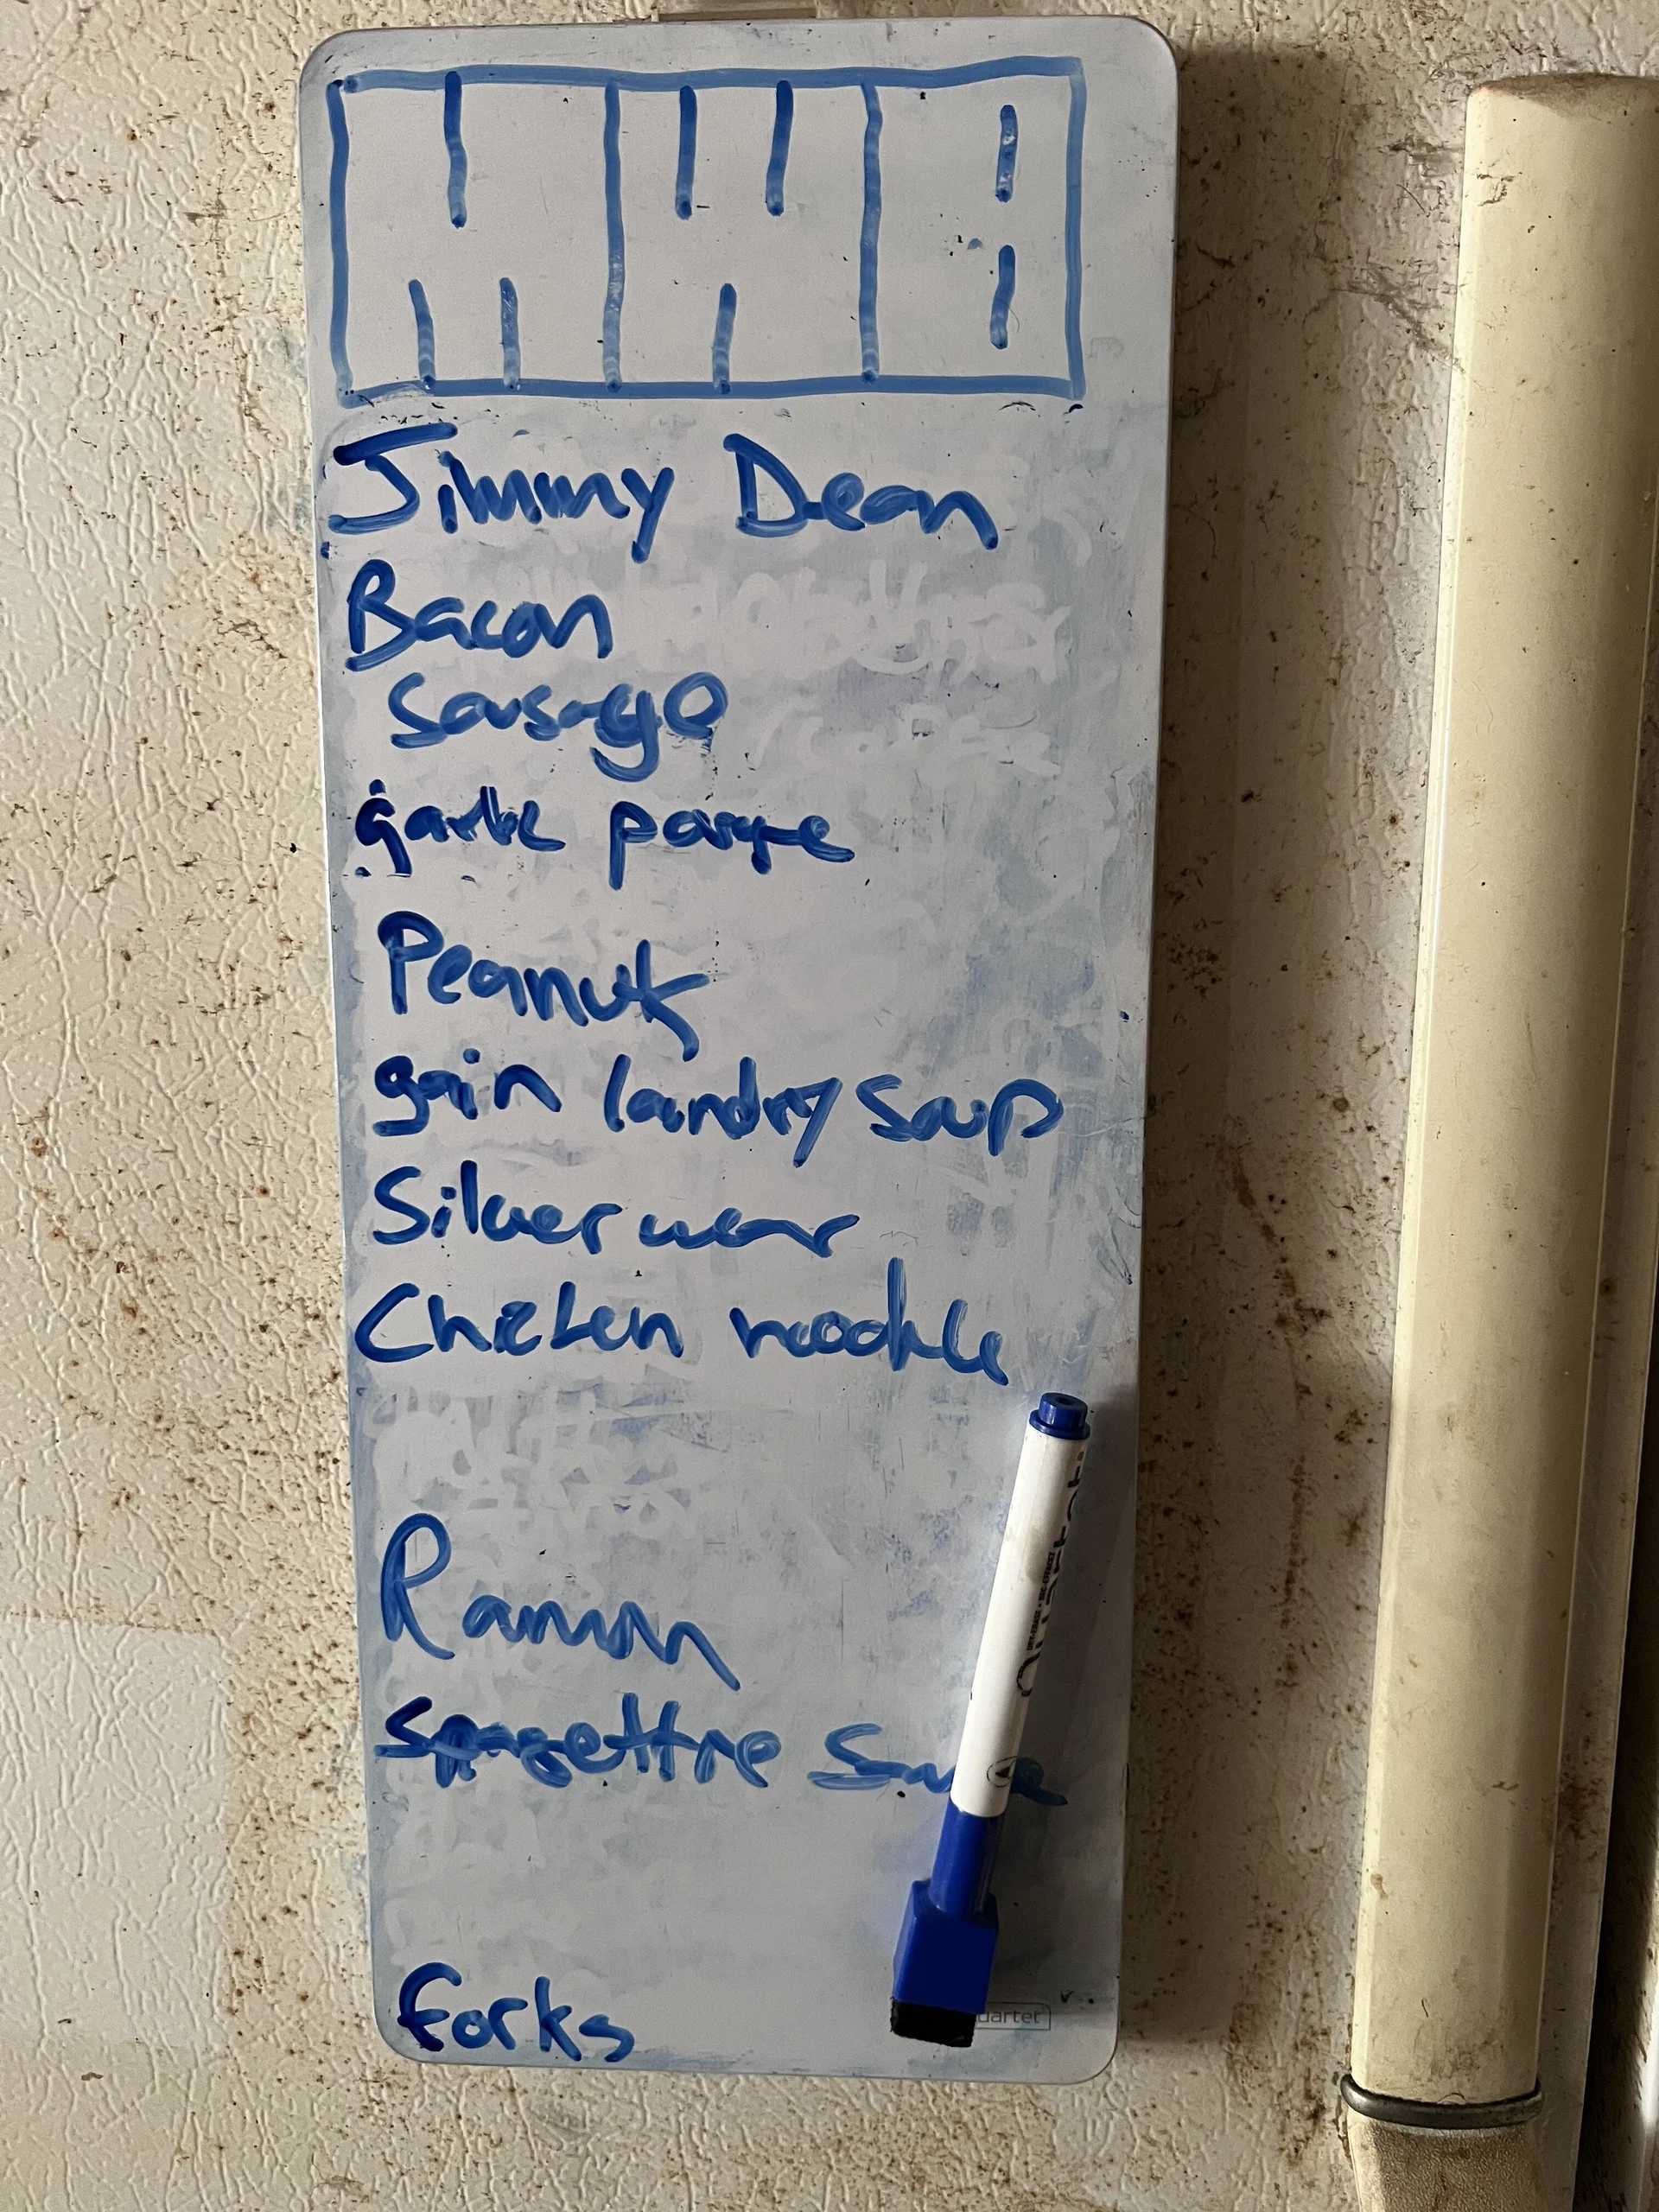 Jimmy Dean
Bacon
Sausage
garlic paste
Peanut
gain laundry soup
Silver wear
Chicken noodle
Ramen
Spagettie Sauce
Quartet
forks